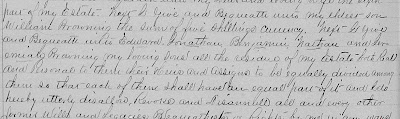 part of my Estate. Next I Give and Bequeath unto my eldest son
William Browning the sum of five Shillings Currency. Next I Give
and Bequeath unto Edward, Jonathan, Benjamin, Nathan and Jer-
emiah Browning my loving Sons all the residue of my Estate both Real
and Personal to them their Heirs and assigns to be equally divided among
them so that each of them shall have an equal part of it and I do
hereby utterly disallow, Revoke and Disannull all and every other
former Wills and Legacies Bequeathed